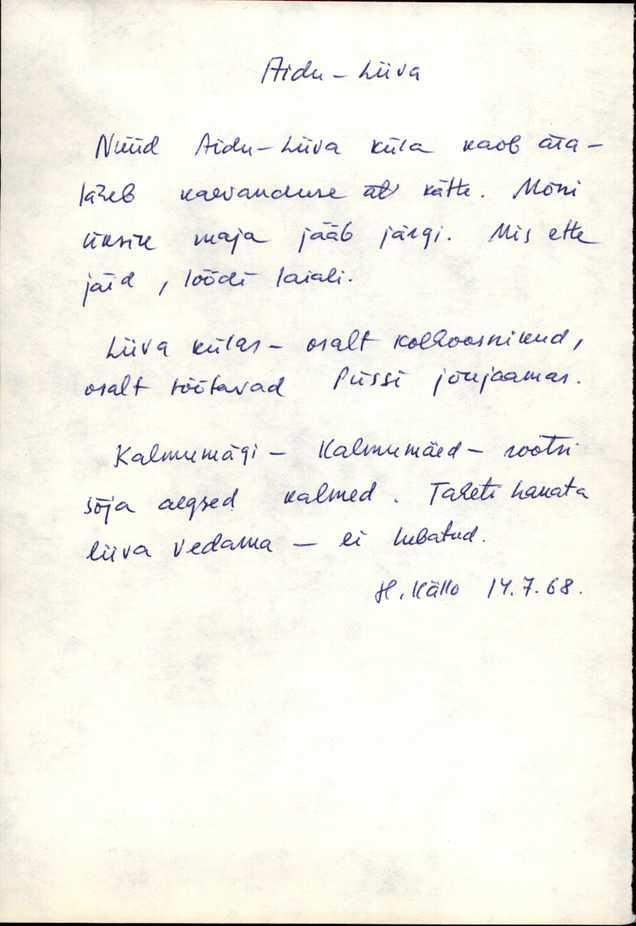 Aidu-Liiva
Nüüd Aidu-Liiva küla kaob ära -
läheb kaevanduse kätte. Mõni
üksik maja jääb järgi. Mis ette
jäid, löödi laiali.
Liiva külas - osalt kolhoosnikud,
osalt töötavad Püssi jõujaamas.
Kalmumägi - Kalmumäed - rootsi
sõja aegsed kalmed. Taheti hakata
liiva vedama - ei lubatud.
H. Källo 14.7.68.